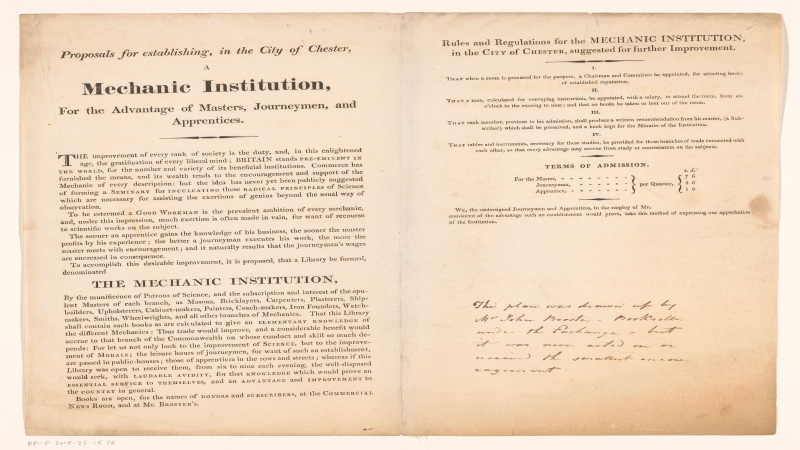 Proposals for establishing, in the City of Chester,
A
Mechanic Institution,
For the Advantage of Masters, Journeymen, and
Apprentices.
THE improvement of every rank of society is the duty, and, in this enlightened
age, the gratification of every liberal mind; BRITAIN stands PRE-EMINENT IN
THE WORLD, for the number and variety of its beneficial institutions. Commerce has
furnished the means, and its wealth tends to the encouragement and support of the
Mechanic of every description: but the idea has never yet been publicly suggested
of forming a SEMINARY for INCULCATING those RADICAL PRINCIPLES of Science
which are necessary for assisting the exertions of genius beyond the usual way of
observation.
To be esteemed a GOOD WORKMAN is the prevalent ambition of every mechanic,
and, under this impression, much exertion is often made in vain, for want of recourse
to scientific works on the subject.
The sooner an apprentice gains the knowledge of his business, the sooner the master
profits by his experience; the better a journeyman executes his work, the more the
master meets with encouragement; and it naturally results that the journeyman's wages
are encreased in consequence.
To accomplish this desirable improvement, it is proposed, that a Library be formed,
denominated
THE MECHANIC INSTITUTION,
By the munificence of Patrons of Science, and the subscription and interest of the opu-
lent Masters of each branch, as Masons, Bricklayers, Carpenters, Plasterers, Ship-
builders, Upholsterers, Cabinet-makers, Painters, Coach-makers, Iron Founders, Watch-
makers, Smiths, Wheelwrights, and all other branches of Mechanics. That this Library
shall contain such books as are calculated to give an ELEMENTARY KNOWLEDGE of
the different Mechanics: Thus trade would improve, and a considerable benefit would
accrue to that branch of the Commonwealth on whose conduct and skill so much de-
pends: For let us not only look to the improvement of SCIENCE, but to the improve-
ment of MORALS; the leisure hours of journeymen, for want of such an establishment,
are passed in public-houses; those of apprentices in the rows and streets; whereas if this
Library was open to receive them, from six to nine each evening, the well-disposed
would seek, with LAUDABLE AVIDITY, for that KNOWLEDGE which would prove an
ESSENTIAL SERVICE to THEMSELVES, and an ADVANTAGE and IMPROVEMENT to
the COUNTRY in general.
Books are open, for the names of DONORS and SUBSCRIBERS, at the COMMERCIAL
NEWS ROOM, and at Mr. BROSTER'S.
RP-P-2015-26-1576
Rules and Regulations for the MECHANIC INSTITUTION,
in the CITY OF CHESTER, suggested for further Improvement.
I.
THAT when a room is procured for the purpose, a Chairman and Committee be appointed, for selecting books
of established reputation.
II.
THAT a man, calculated for conveying instruction, be appointed, with a salary, to attend the room, from six
o'clock in the evening to nine; and that no books be taken or lent out of the room.
III.
THAT each member, previous to his admission, shall produce a written recommendation from his master, (a Sub-
scriber) which shall be preserved, and a book kept for the Minutes of the Institution.
IV.
THAT tables and instruments, necessary for these studies, be provided for those branches of trade connected with
each other, so that every advantage may accrue from study or conversation on the subjects.
TERMS OF ADMISSION.
s. d.
For the Master, - - - - - - - 7 6
Journeyman, - - - - - - per Quarter, 4 0
Apprentice, - - - - - -
WE, the undersigned Journeymen and Apprentices, in the employ of Mr.
convinced of the advantage such an establishment would prove, take this method of expressing our approbation
of the Institution.
This plan was drawn up by
Mr John Broster - Bookseller
under the Exchange - but
it was never acted on or
received the smallest encou
ragement